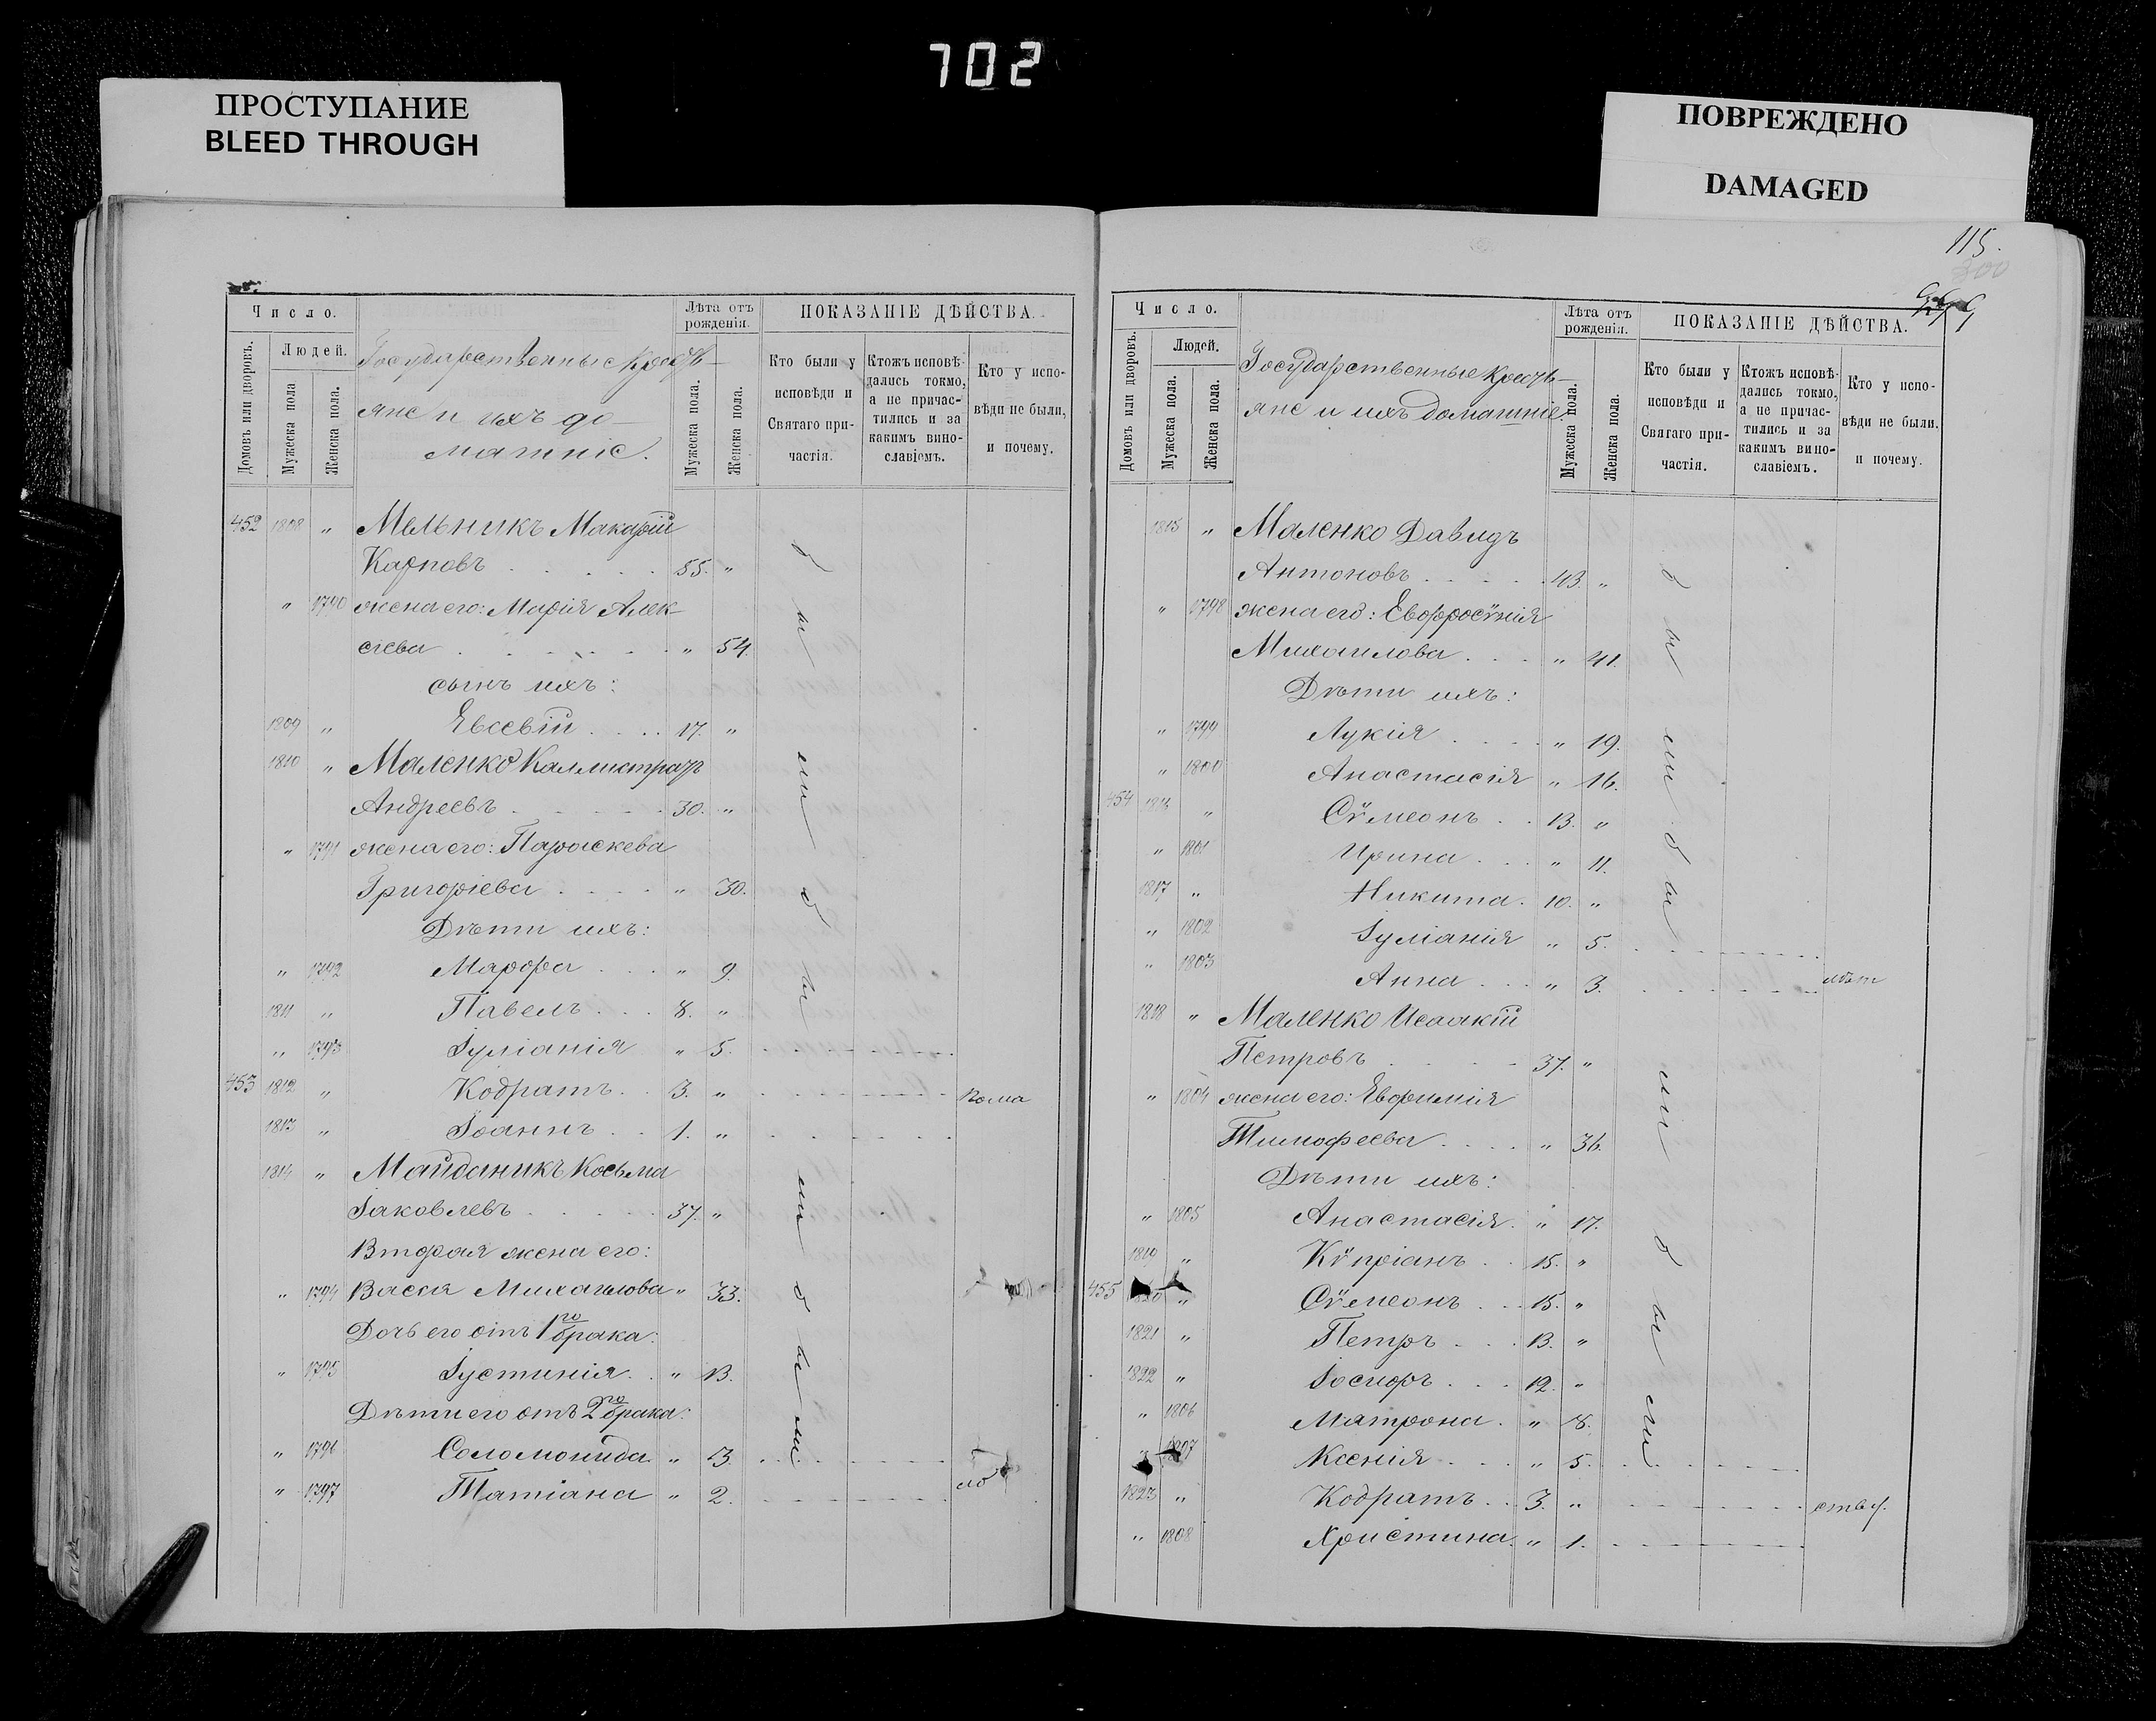 702
ПРОСТУПАНИЕ
BLEED THROUGH
ПОВРЕЖДЕНО
DAMAGED
Число.
Домовъ или дворовъ.
Людей.
Мужеска пола
Женска пола.
Государственные Крестья-
яне и ихъ до-
машніе.
Лѣта отъ рожденія.
Мужеска пола.
Женска пола.
ПОКАЗАНІЕ ДѢЙСТВА.
Кто были у исповѣди и Святаго причастія.
Ктожъ исповѣдались токмо, а не причастились и за какимъ винославіемъ.
Кто у исповѣди не были, и почему.
452 1808 " Мельникъ Макарій
Карповъ 55. "
" 1790 жена его: Марія Алек-
сѣева " 54.
сынъ ихъ:
1809 " Евсевій 17. "
1810 " Маленко Каллистратъ
Андреевъ 30. "
" 1791 жена его: Параскева
Григоріева " 30.
Дѣти ихъ:
" 1792 Марфа " 9.
1811 " Павелъ 8. "
" 1793 Іуліанія " 5.
453 1812 " Кодратъ 3. "
1813 " Іоаннъ 1. "
1814 " Майданикъ Косьма
Іаковлевъ 37. "
Вторая жена его:
" 1794 Васса Михаилова " 33.
Дочь его отъ 1го брака:
" 1795 Іустинія " 13.
Дѣти его отъ 2го брака:
" 1796 Соломонида " 3.
" 1797 Татіана " 2.
были были
были были
115.
300
Число.
Домовъ или дворовъ.
Людей.
Мужеска пола.
Женска пола.
Государственные Крестья-
яне и ихъ домашніе.
Лѣта отъ рожденія.
Мужеска пола.
Женска пола.
ПОКАЗАНІЕ ДѢЙСТВА.
Кто были у исповѣди и Святаго причастія.
Ктожъ исповѣдались токмо, а не причастились и за какимъ винославіемъ.
Кто у исповѣди не были. и почему.
1815 " Маленко Давидъ
Антоновъ 43. "
" 1798 жена его: Евфросѵнія
Михаилова " 41.
Дѣти ихъ:
" 1799 Лукія " 19.
" 1800 Анастасія " 16.
454 1816 " Сѵмеонъ 13. "
" 1801 Ирина " 11.
1817 " Никита 10. "
" 1802 Іуліанія " 5.
" 1803 Анна " 3.
лѣт
1818 " Маленко Исаакій
Петровъ 37. "
" 1804 жена его: Евфимія
Тимофеева " 36.
Дѣти ихъ:
" 1805 Анастасія " 17.
1819 " Кѵпріанъ 15. "
455 1820 " Сѵмеонъ 15. "
1821 " Петръ 13. "
1822 " Іосифъ 12. "
" 1806 Матрона " 8.
" 1807 Ксенія " 5.
1823 " Кодратъ 3. "
ству.
" 1808 Христина " 1.